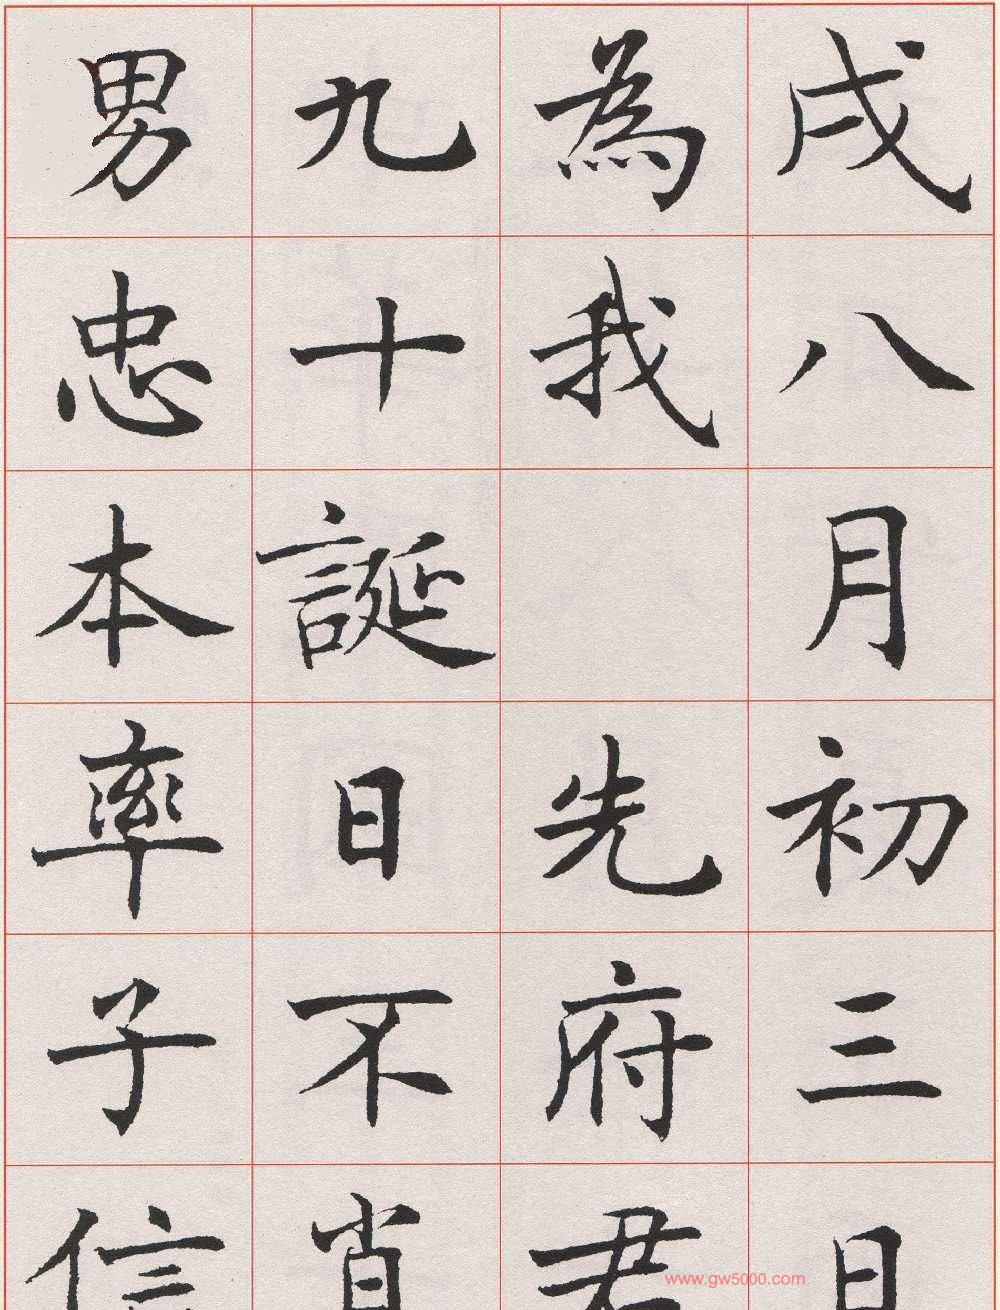 戌八月初三日
為我 先府君
九十誕日不肖
男忠本率子信
www.gw5000.com